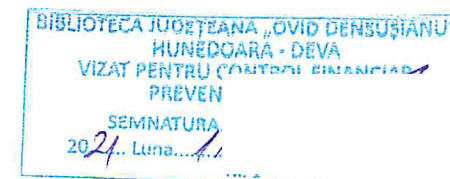 BIBLIOTECA JUDEȚEANA „OVID DENSUȘIANU"
HUNEDOARA - DEVA
VIZAT PENTRU CONTROL FINANCIAR
PREVEN
SEMNATURA
2021.. Luna....1...